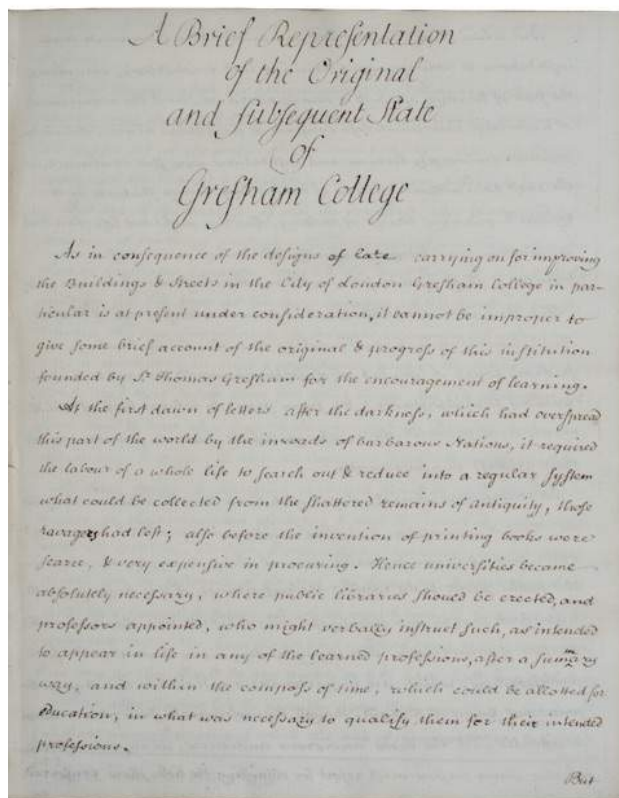 A Brief Repreſentation
of the Original
and ſubſequent State
of
Greſham College
As in conſequence of the deſigns of late carrying on for improving
the Buildings & Streets in the City of London Greſham College in par-
ticular is at present under conſideration, it cannot be improper to
give ſome brief account of the original & progreſs of this inſtitution
founded by Sr. Thomas Greſham for the encouragement of learning.
At the first dawn of letters after the darkneſs, which had overſpread
this part of the world by the inroads of barbarous Nations, it required
the labour of a whole life to ſearch out & reduce into a regular ſyſtem
what could be collected from the ſhattered remains of antiquity, those
ravagers had left; alſo before the invention of printing books were
ſcarce, & very expenſive in procuring. Hence univerſities became
abſolutely neceſſary, where public libraries ſhould be erected, and
profeſſors appointed, who might verbally inſtruct ſuch, as intended
to appear in life in any of the learned profeſſions, after a ſummary
way, and within the compaſs of time, which could be allotted for
Education, in what was neceſſary to qualify them for their intended
profeſſions.
But